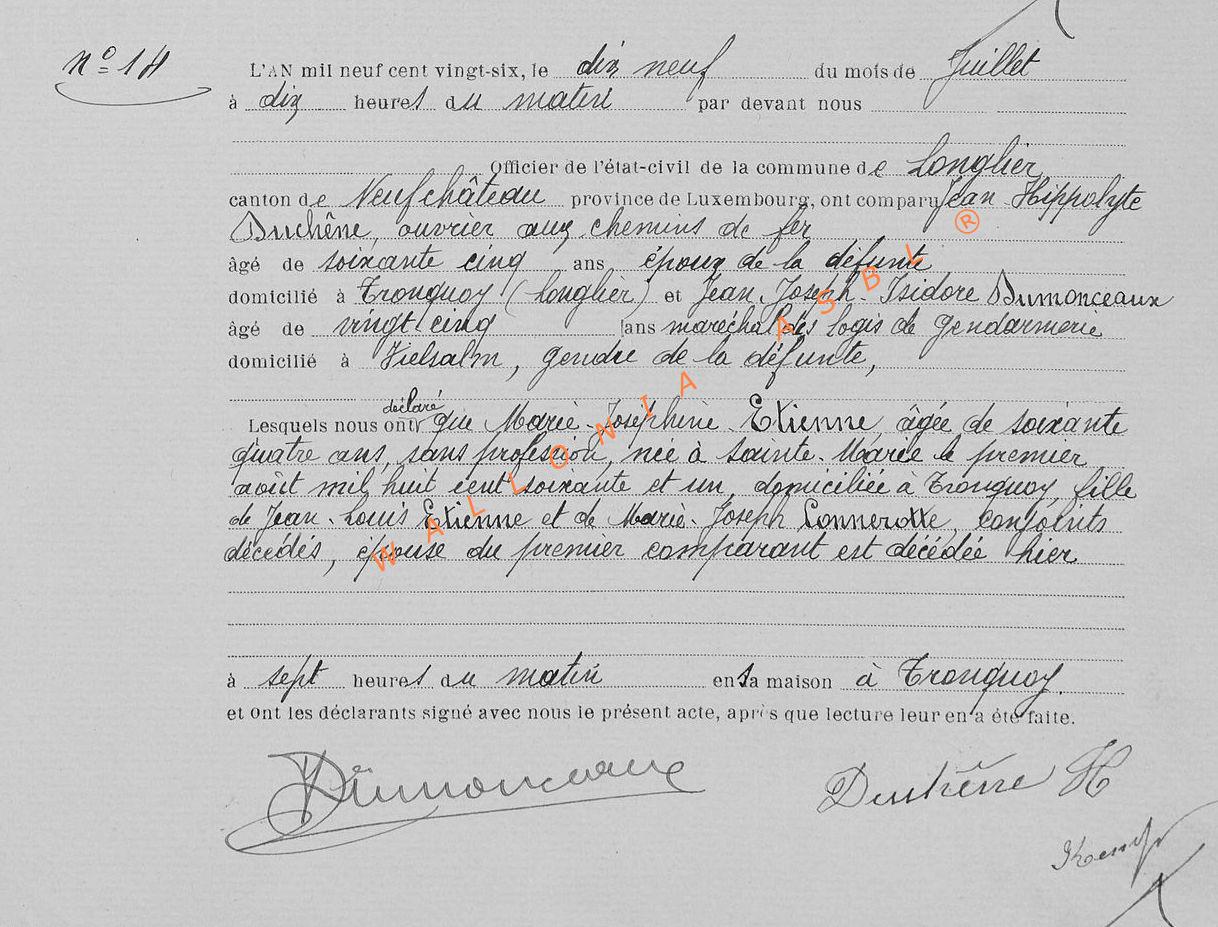 nº 14
L'AN mil neuf cent vingt-six, le dix neuf du mois de Juillet
à dix heures du matin par devant nous
Officier de l'état-civil de la commune de Longlier,
canton de Neufchâteau province de Luxembourg, ont comparu Jean-Hippolyte
Duchêne, ouvrier aux chemins de fer
âgé de soixante cinq ans époux de la défunte
domicilié à Tronquoy (Longlier) et Jean-Joseph-Isidore Dumonceaux
âgé de vingt cinq ans maréchal des logis de gendarmerie
domicilié à Vielsalm, gendre de la défunte,
déclaré
Lesquels nous ont que Marie-Joséphine Etienne, âgée de soixante
quatre ans, sans profession, née à Sainte-Marie le premier
août mil huit cent soixante et un, domiciliée à Tronquoy, fille
de Jean-Louis Etienne et de Marie-Joseph Connerotte, conjoints
décédés, épouse du premier comparant est décédée hier
à sept heures du matin en sa maison à Tronquoy.
et ont les déclarants signé avec nous le présent acte, après que lecture leur en a été faite.
Dumonceaux
Duchêne H
WALLONIA ASBL ®